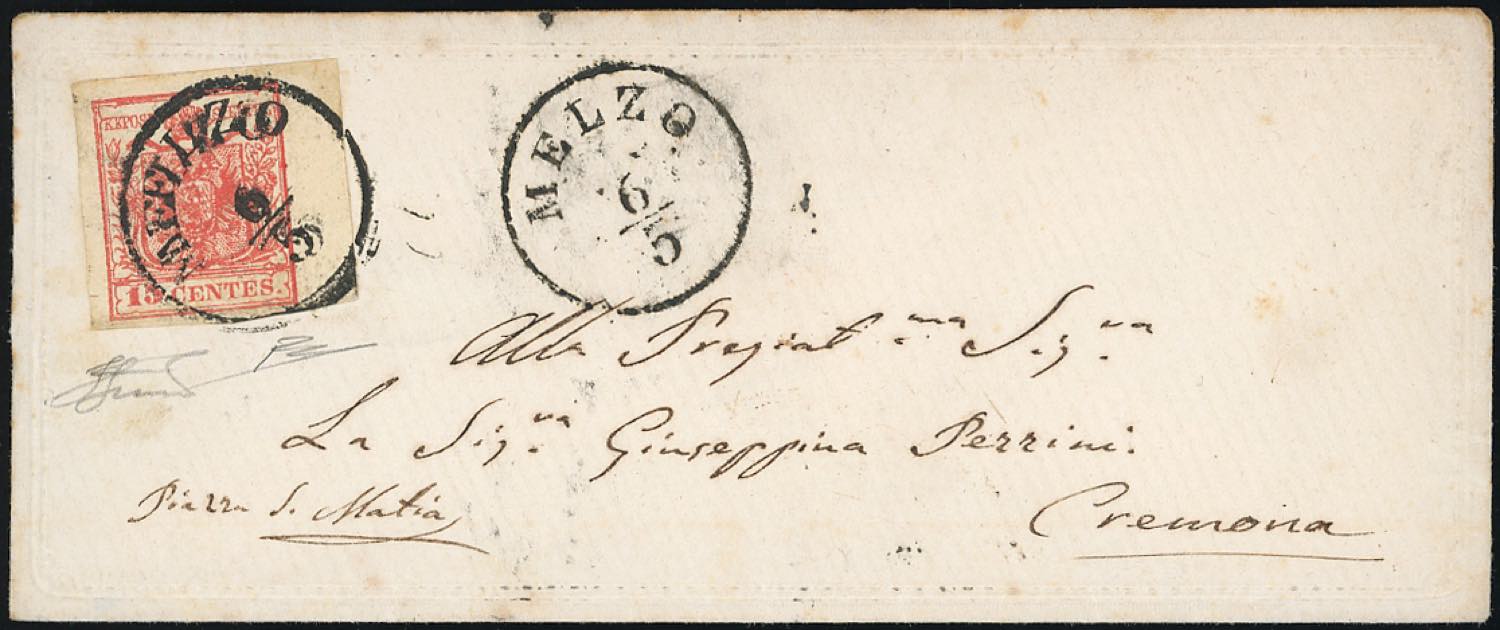 KKPOS
15 CENTES.
MELZO
6/5
MELZO
6/5
Alla Pregiat.ma Sig.ra
La Sig.ra Giuseppina Perrini.
Piazza S. Matia
Cremona